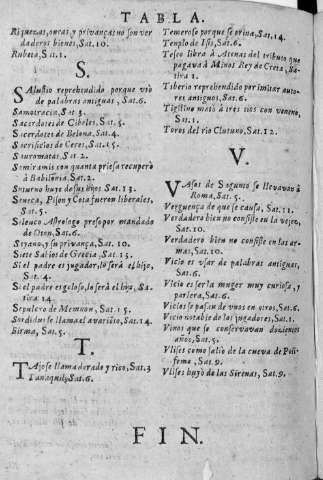 TABLA.
Riquezas, onras y privanças no son ver
daderos bienes, Sat.10.
Rubeta, Sat.1.
S.
Salustio reprehendido porque usò
de palabras antiguas, Sat.6.
Samotracia, Sat.3.
Sacerdotes de Cibeles, Sat.5.
Sacerdotes de Belona, Sat.4.
Sacrificios de Ceres, Sat.15.
Sauromatas, Sat.2.
Semiramis con quanta priesa recuperò
à Babilonia, Sat.2.
Saturno huye de sus hijos Sat.13.
Seneca, Pison y Cota fueron liberales,
Sat.5.
Seleuco Astrologo preso por mandado
de Oton, Sat.6.
Seyano, y su privança, Sat.10.
Siete Sabios de Grecia, Sat.13.
Si el padre es jugador, lo serà el hijo,
Sat.4.
Si el padre es goloso, lo serà el hijo, Sa
tira 14.
Sepulcro de Memnon, Sat.15.
Sordidus se llama el avariēto, Sat.14.
Sirma, Sat.5.
T.
Tajo se llama dorado y rico, Sat.3
Tanaquil, Sat.6.
Temeroso porque se orina, Sat.14.
Templo de Isis, Sat.6.
Teseo libra à Atenas del tributo que
pagava à Minos Rey de Creta, Sa-
tira 1.
Tiberio reprehendido por imitar auto-
res antiguos, Sat.6.
Tigilino matò à tres tios con veneno,
Sat.1.
Toros del rio Clituno, Sat.12.
V.
Vasos de Sagunto se llevavan à
Roma, Sat.5.
Verguença de que se causa, Sat.11.
Verdadero bien no consiste en la vejez,
Sat.10.
Verdadero bien no consiste en las ar-
mas, Sat.10.
Vicio es usar de palabras antiguas,
Sat.6.
Vicio es ser la muger muy curiosa, y
parlera, Sat.6.
Vicios se passan de unos en otros, Sat.6.
Vicio notable de los jugadores, Sat.1.
Vinos que se conservavan dozientos
años, Sat.5.
Ulises como salio de la cueva de Poli-
femo, Sat.9.
Ulises huyò de las Sirenas, Sat.9.
FIN.